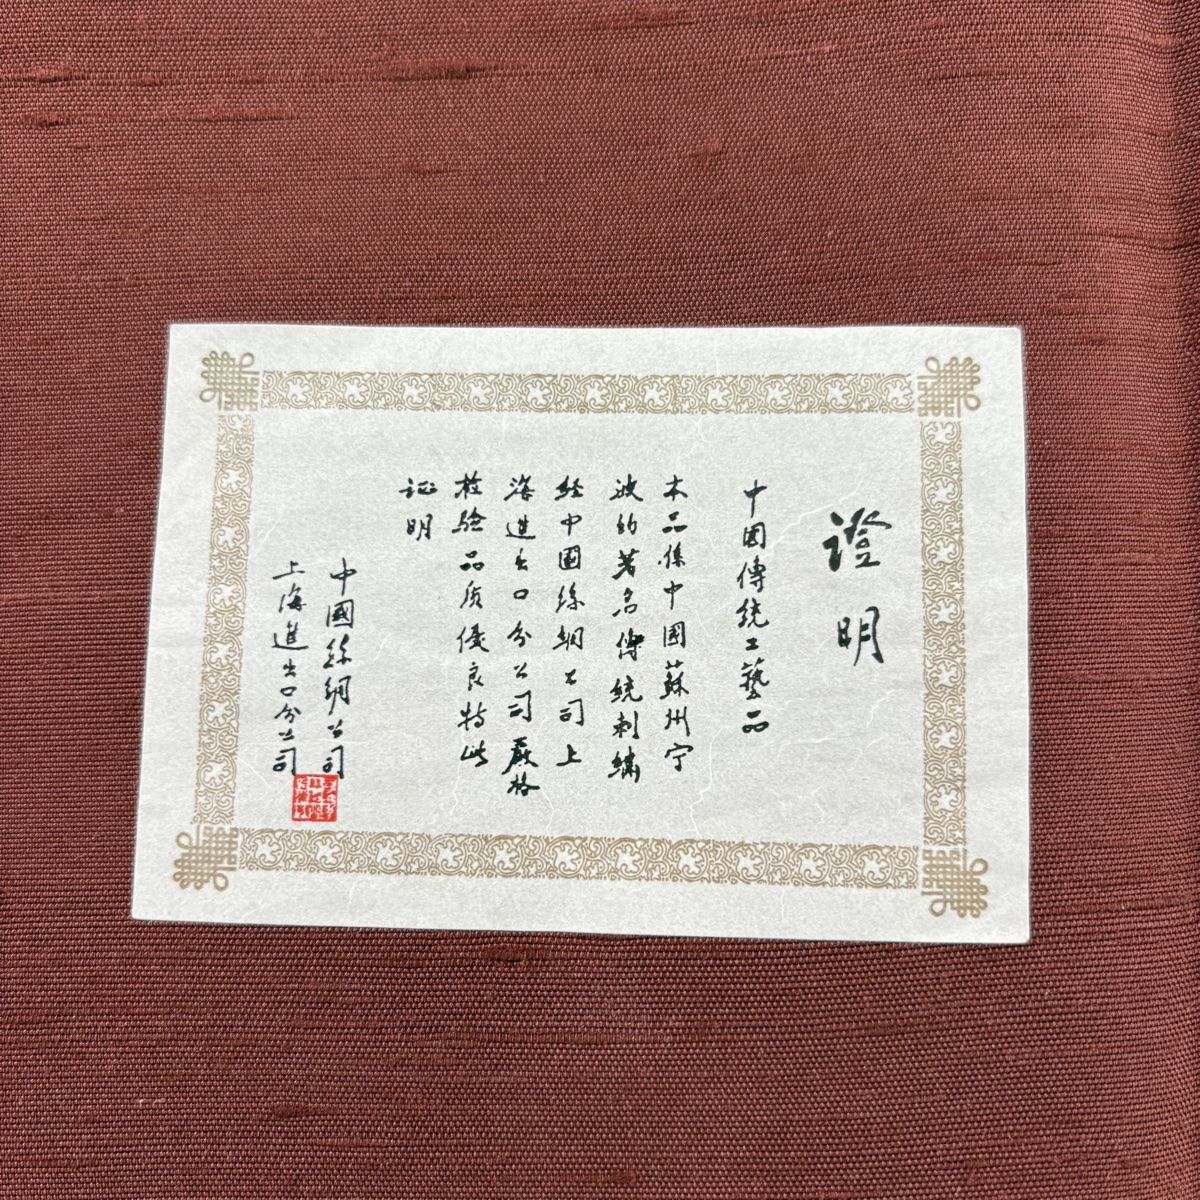 證明
中國傳統工藝品
本品係中國蘇州宁
波的著名傳統刺繡
经中國絲綢公司上
海進出口分公司嚴格
检驗品质優良特此
证明
中國絲綢公司
上海進出口分公司